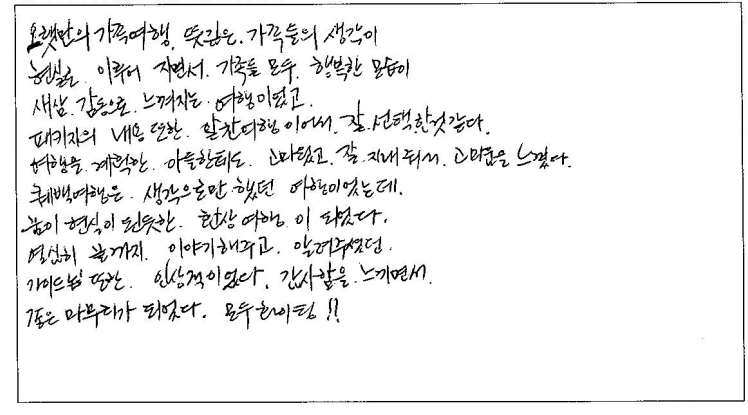 오랫만의 가족여행, 뜻깊은, 가족들의 생각이
현실로 이루어 지면서, 가족들 모두, 행복한 모습이
새삼, 감동으로, 느껴지는 여행이었고,
패키지의 내용 또한, 알찬여행 이어서, 잘 선택한것 같다.
여행을 계획한, 아들한테도, 고마웠고, 잘 지내줘서, 고마움을 느꼈다.
퀘백여행은, 생각으로만 했던 여행이었는데,
꿈이 현실이 된듯한, 환상 여행 이 되었다.
열심히 끝까지, 이야기해주고, 알려주셨던,
가이드님 또한, 인상적이었다, 감사함을 느끼면서,
좋은 마무리가 되었다. 모두 화이팅 !!